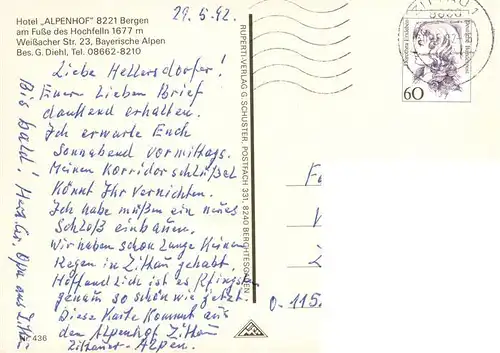 Hotel „ALPENHOF" 8221 Bergen
am Fuße des Hochfelln 1677 m
Weißacher Str. 23, Bayerische Alpen
Bes. G. Diehl, Tel. 08662-8210
29.5.92.
Liebe Hellersdorfer!
Euren lieben Brief
dankend erhalten.
Ich erwarte Euch
Sonnabend vormittags.
Meinen Korridorschlüßel
könnt Ihr vernichten.
Ich habe müßen ein neues
Schloß einbauen.
Wir haben schon lange keinen
Regen in Zittau gehabt.
Hoffendlich ist es Pfingsten
genau so schön wie jetzt.
Diese Karte kommt aus
den Alpenhof Zittau
Zittauer-Alpen.
Bis bald! Herzl. Gr. Opa aus
436
RUPERTI-VERLAG G. SCHUSTER, POSTFACH 331, 8240 BERCHTESGADEN
60
O-115